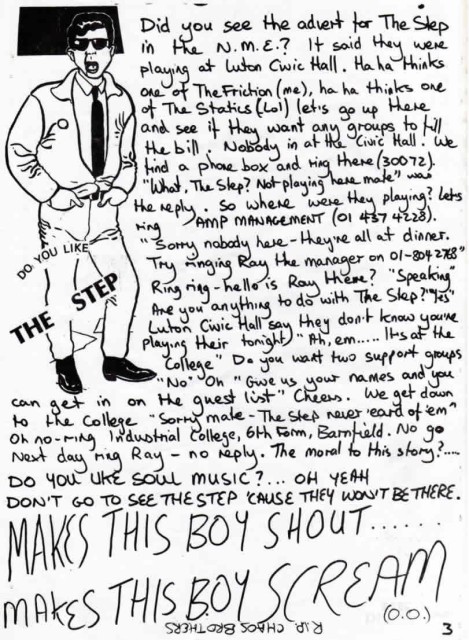 Did you see the advert for The Step
in the N.M.E.? It said they were
playing at Luton Civic Hall. Ha ha thinks
one of The Friction (me), ha ha thinks one
of The Statics (Lol) let's go up there
and see if they want any groups to fill
the bill. Nobody in at the Civic Hall. We
find a phone box and ring there (30072).
"What, The Step? Not playing here mate" was
the reply. So where were they playing? Lets
ring AMP MANAGEMENT (01 437 4228).
"Sorry nobody here - they're all at dinner.
Try ringing Ray the manager on 01-804 2768"
Ring ring - hello is Ray there? "Speaking"
Are you anything to do with The Step? "Yes"
Luton Civic Hall say they don't know you're
playing their tonight," "Ah, em..... It's at the
College" Do you want two support groups
"No" Oh "Give us your names and you
can get in on the guest list" Cheers. We get down
to the College "Sorry mate - The Step never 'eard of 'em"
Oh no - ring Industrial College, 6th Form, Barnfield. No go
Next day ring Ray - no reply. The moral to this story?.....
DO YOU LIKE SOUL MUSIC?... OH YEAH
DON'T GO TO SEE THE STEP 'CAUSE THEY WON'T BE THERE.
DO YOU LIKE
THE STEP
MAKES THIS BOY SHOUT......
MAKES THIS BOY SCREAM
(O.O.)
R.I.P. CHAOS BROTHERS
3